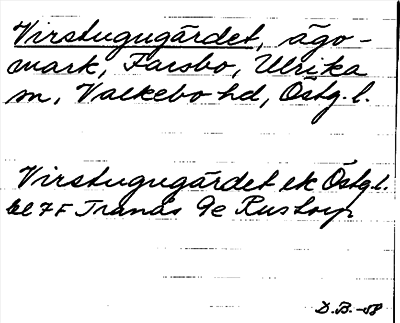 Virstugugärdet, ägo-
mark, Farsbo, Ulrika
sn, Valkebo hd, Östg. l.
Virstugugärdet ek Östg.l.
bl 7F Tranås 9e Rustorp
D.B. -58